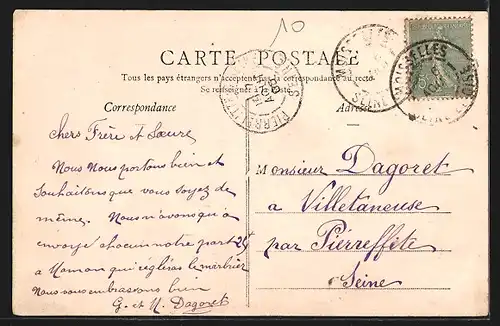 10
CARTE POSTALE
Tous les pays étrangers n'acceptent pas la correspondance au recto
Se renseigner à la Poste
Correspondance
Adresse
MOISSELLES
SEINE
PIERREFITTE
chers Frère et Soeure
Nous Nous portons bien et
souhaitons que vous soyez de
même. Nous n'avons qu'à
envoyé chacun notre part 25f
a Maman qui réglera le marbrier
Nous vous embrassons bien
G. et N. Dagoret
Monsieur Dagoret
a Villetaneuse
par Pierreffite
Seine